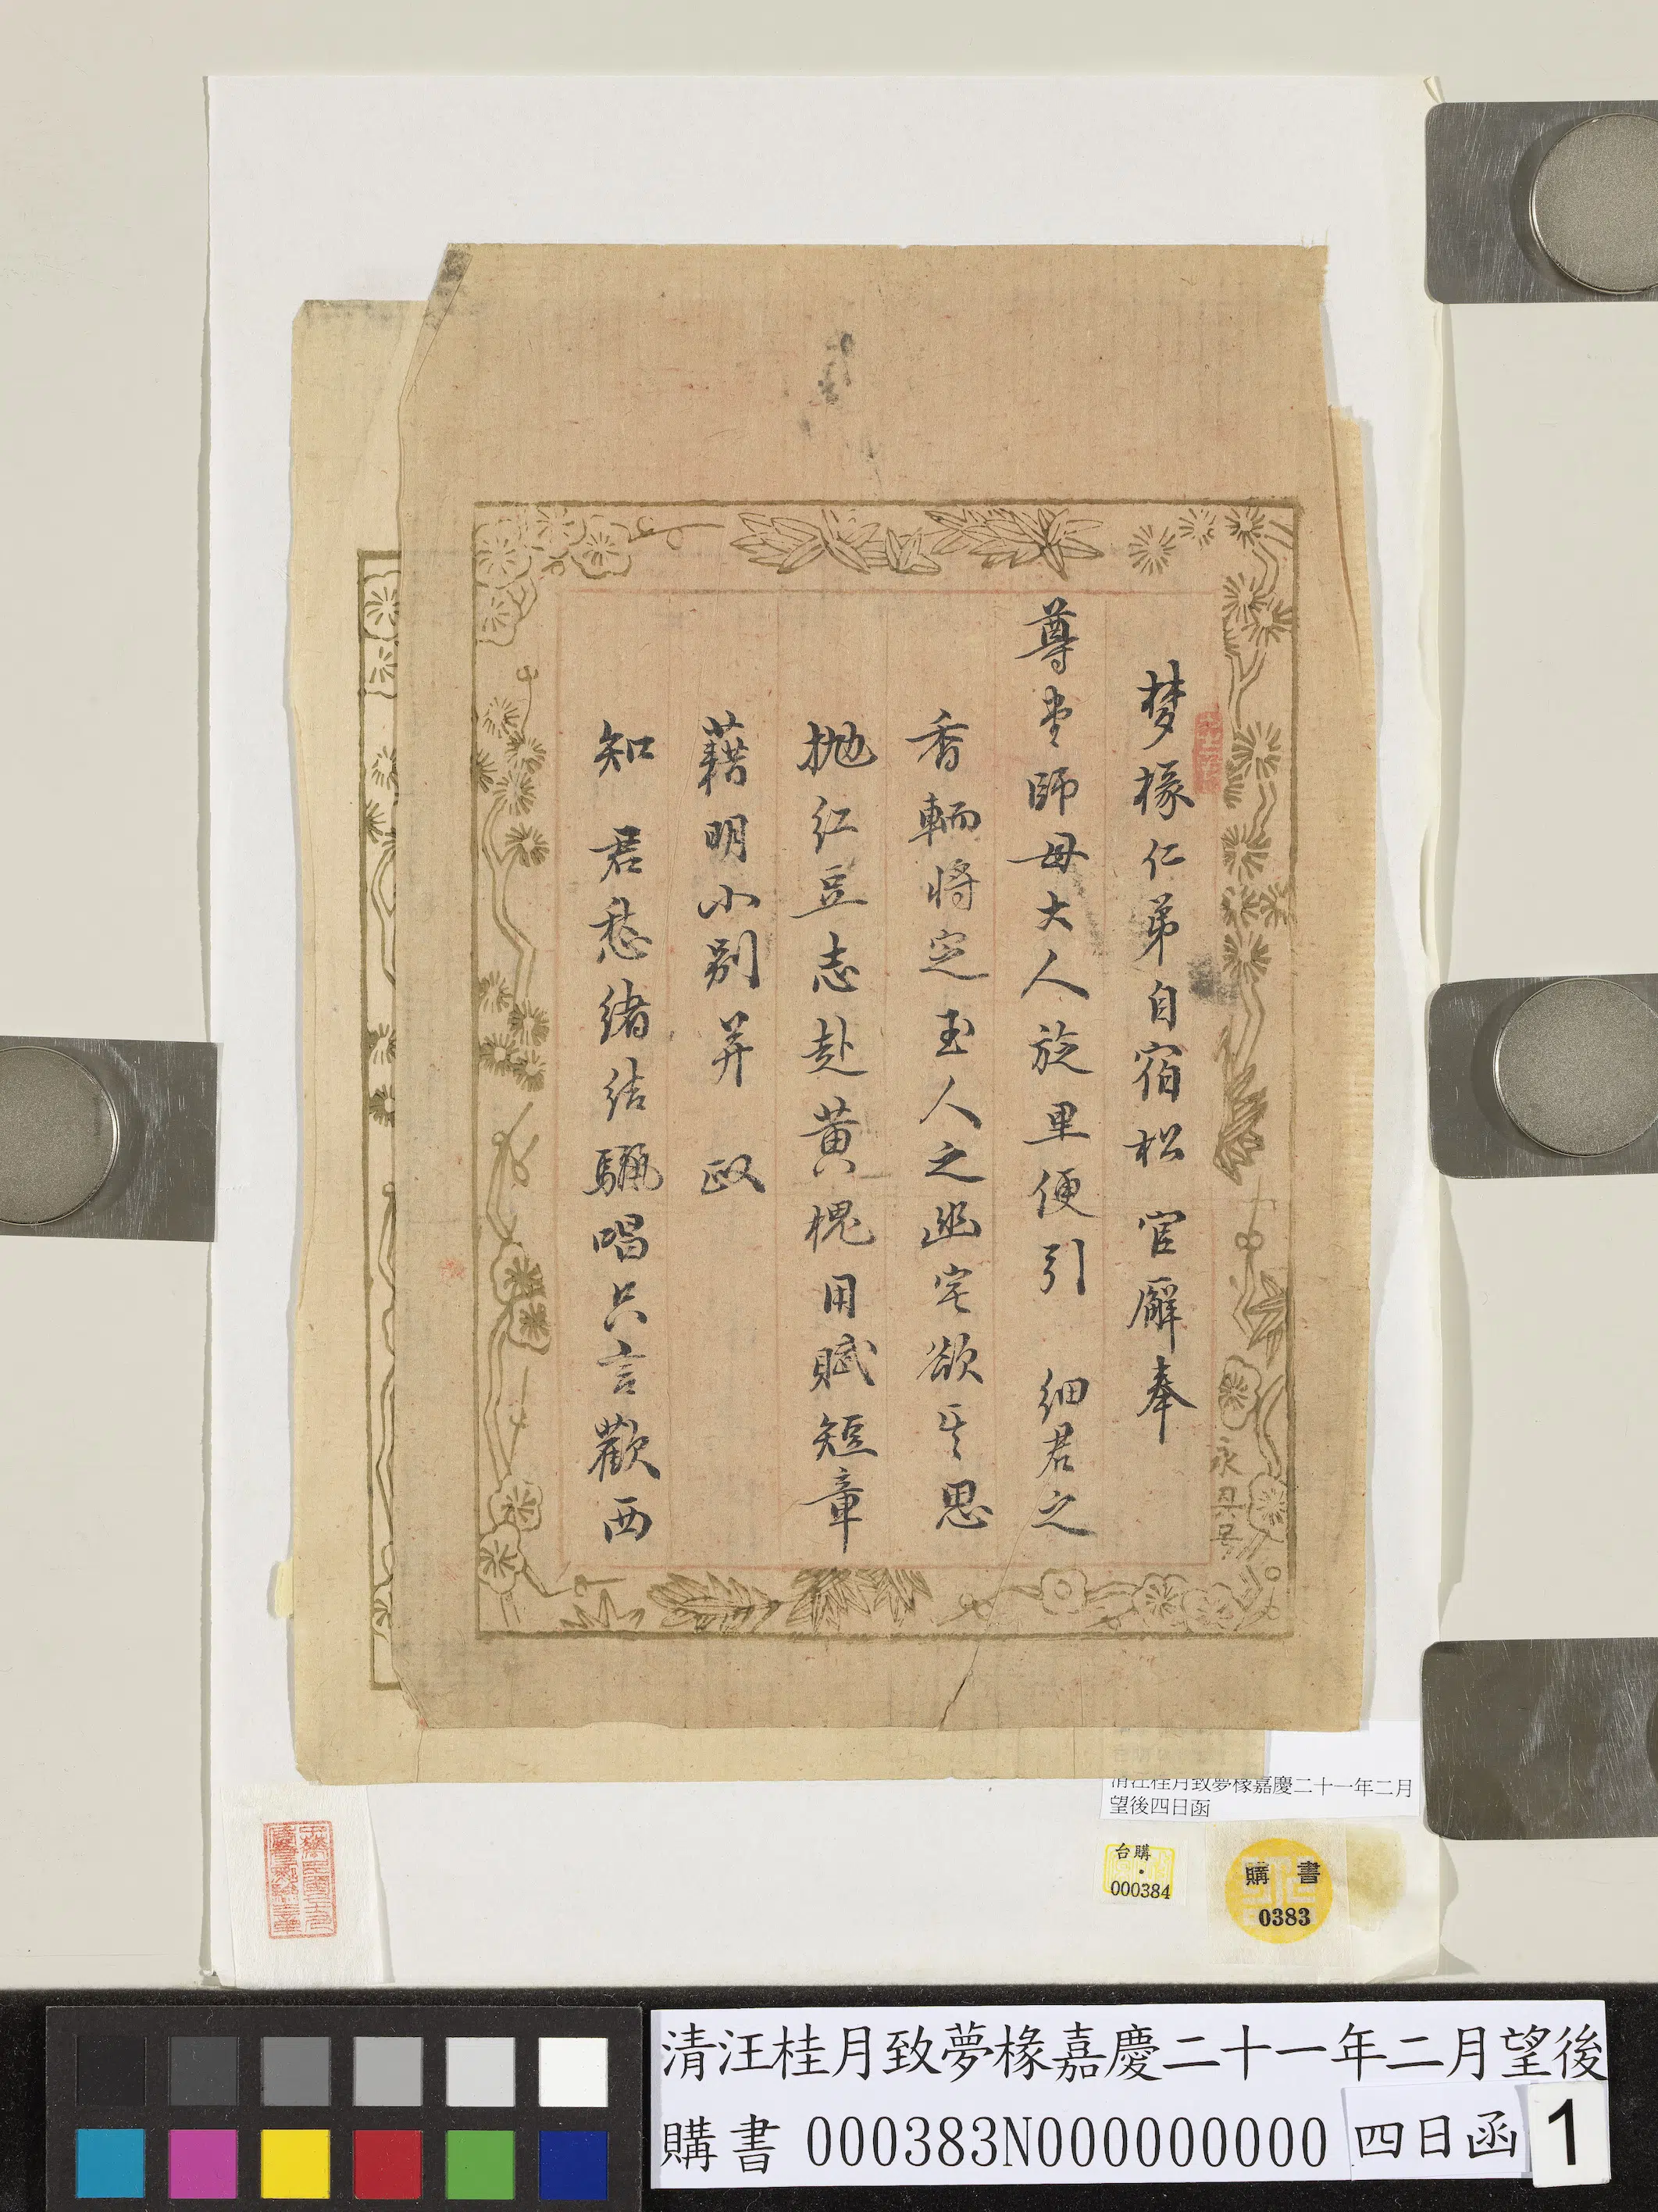 梦橡仁弟自宿松 官廨奉
尊堂師母大人旋里便引 細君之
香輀將定玉人之幽宅欲寄思
拋红豆志赴黄槐用賦短章
藉明小别并 政
知 君愁緒結驪唱只言歡西
永興号
清汪桂月致夢橡嘉慶二十一年二月
望後四日函
台購
000384
購書
0383
清汪桂月致夢橡嘉慶二十一年二月望後
購書 000383N000000000 四日函 1